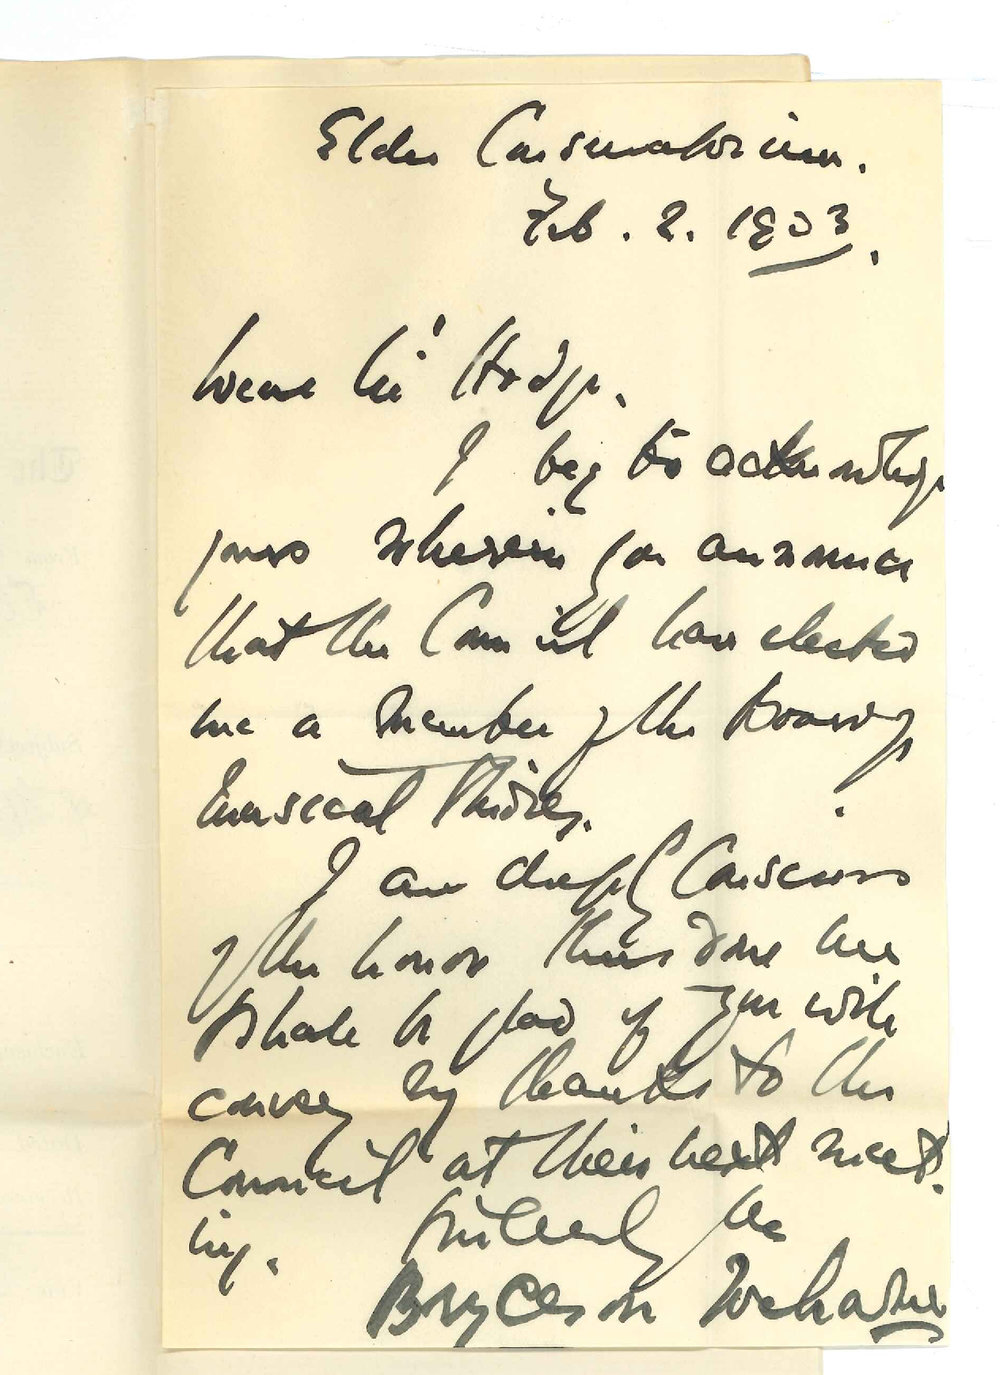 Elder Conservatorium.
Feb. 2. 1903.
Dear Mr Hodge.
I beg to acknowledge
yours wherein you announce
that the Council have elected
me a member of the Board of
Musical Studies.
I am deeply conscious
of the honor thus done me
& shall be glad if you will
convey my thanks to the
Council at their next meet-
ing. Sincerely yrs
Bryceson Treharne